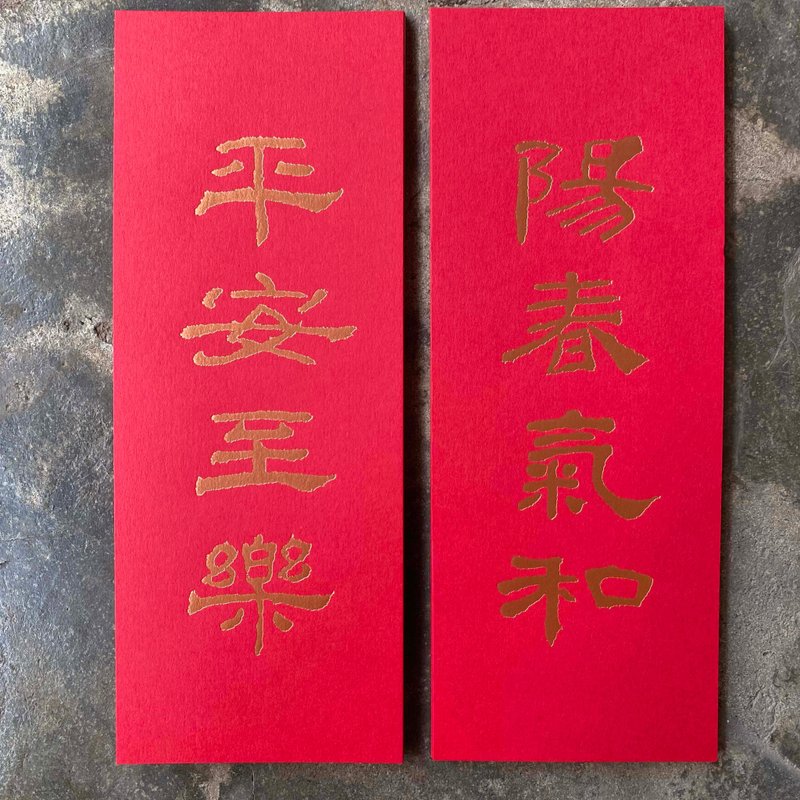 陽春氣和
平安至樂